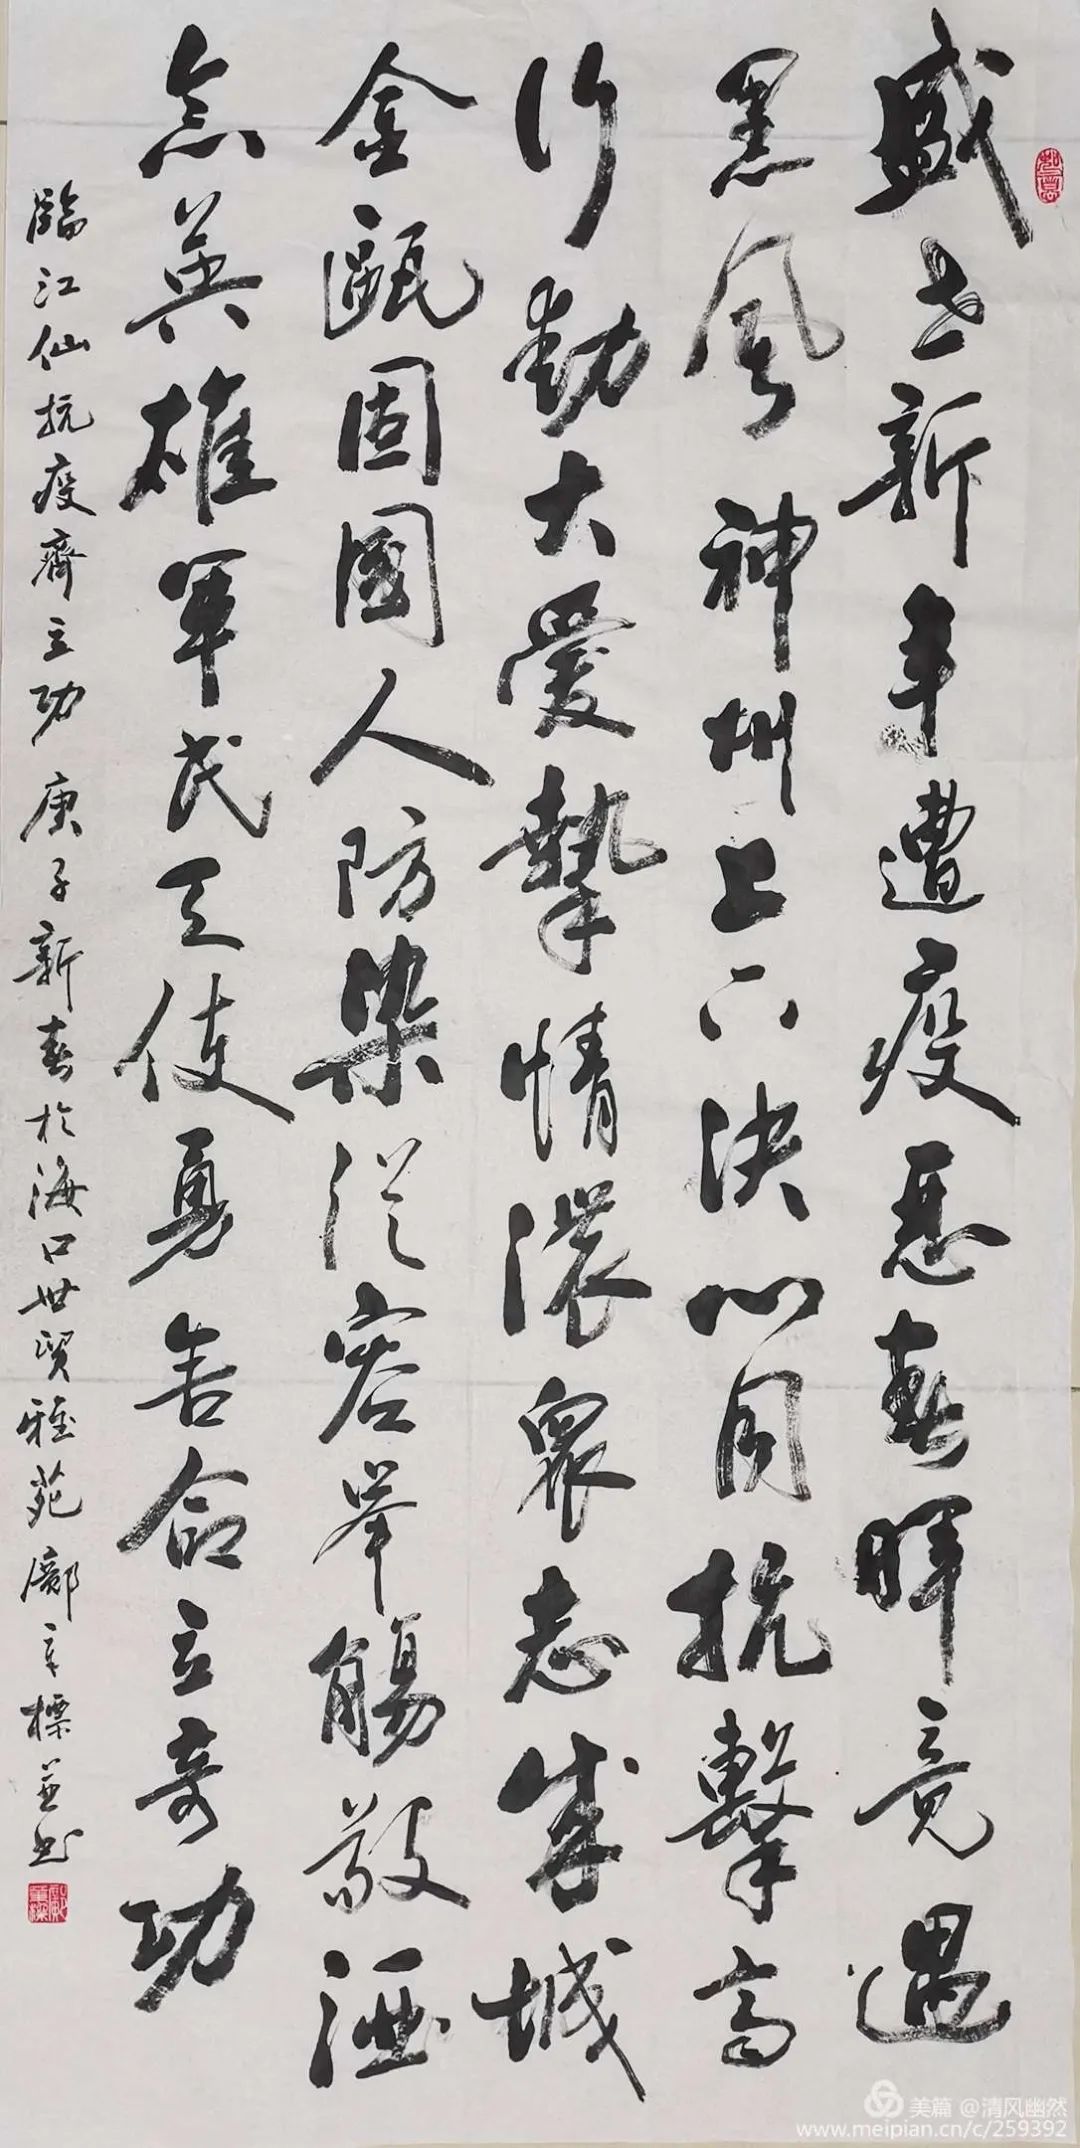 盛世新年遭疫惡春暉竟遇
黑風神州上下決心同抗擊高
行動大愛摯情濃眾志成城
金甌固國人防染從容舉觴敬酒
念英雄軍民天使勇舍命立奇功
臨江仙抗疫齊立功 庚子新春於海口世貿雅苑鄺章標並书
美篇 @清风幽然
www.meipian.cn/c/259392